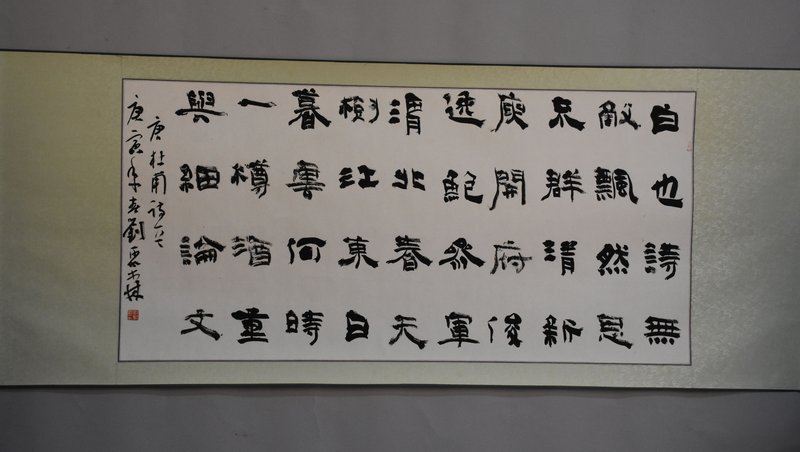 白也詩無
敵飄然思
不群清新
庾開府俊
逸鮑參軍
渭北春天
樹江東日
暮雲何時
一樽酒重
與細論文
唐杜甫詩一首
庚寅年春劉